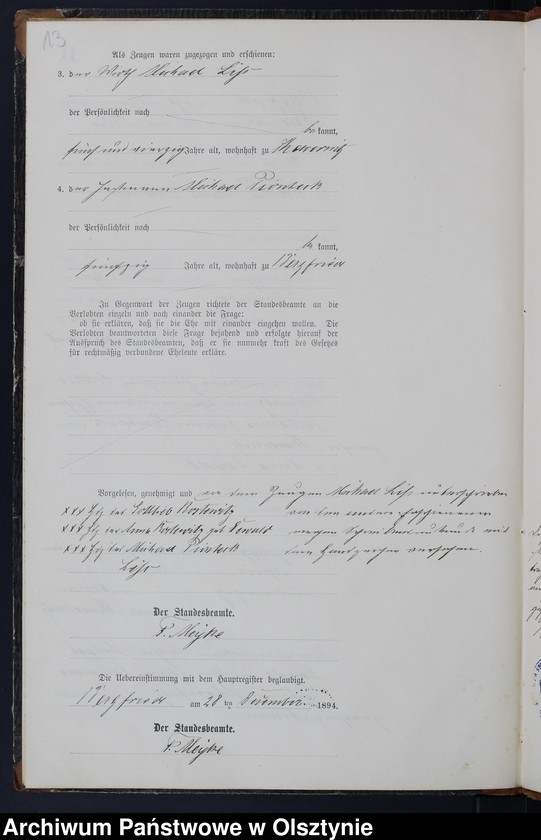 13
Als Zeugen waren zugezogen und erschienen:
3. der Wirth Michael Liss
der Persönlichkeit nach
be kannt,
fünf und vierzig Jahre alt, wohnhaft zu
4. der Instmann Michael
der Persönlichkeit nach
be kannt,
fünfzig Jahre alt, wohnhaft zu Bergfriede
In Gegenwart der Zeugen richtete der Standesbeamte an die
Verlobten einzeln und nach einander die Frage:
ob sie erklären, daß sie die Ehe mit einander eingehen wollen. Die
Verlobten beantworteten diese Frage bejahend und erfolgte hierauf der
Ausspruch des Standesbeamten, daß er sie nunmehr kraft des Gesetzes
für rechtmäßig verbundene Eheleute erkläre.
Vorgelesen, genehmigt und von dem Zeugen Michael Liss unterschrieben
xxx Hz. des Gottlieb von den andern Erschienenen
xxx Hz. der geb. wegen Schreibensunkunde mit
xxx Hz. des Michael dem Handzeichen versehen.
Liss
Der Standesbeamte.
Die Uebereinstimmung mit dem Hauptregister beglaubigt.
Bergfriede am 28 ten Dezember 1894.
Der Standesbeamte.
Archiwum Państwowe w Olsztynie